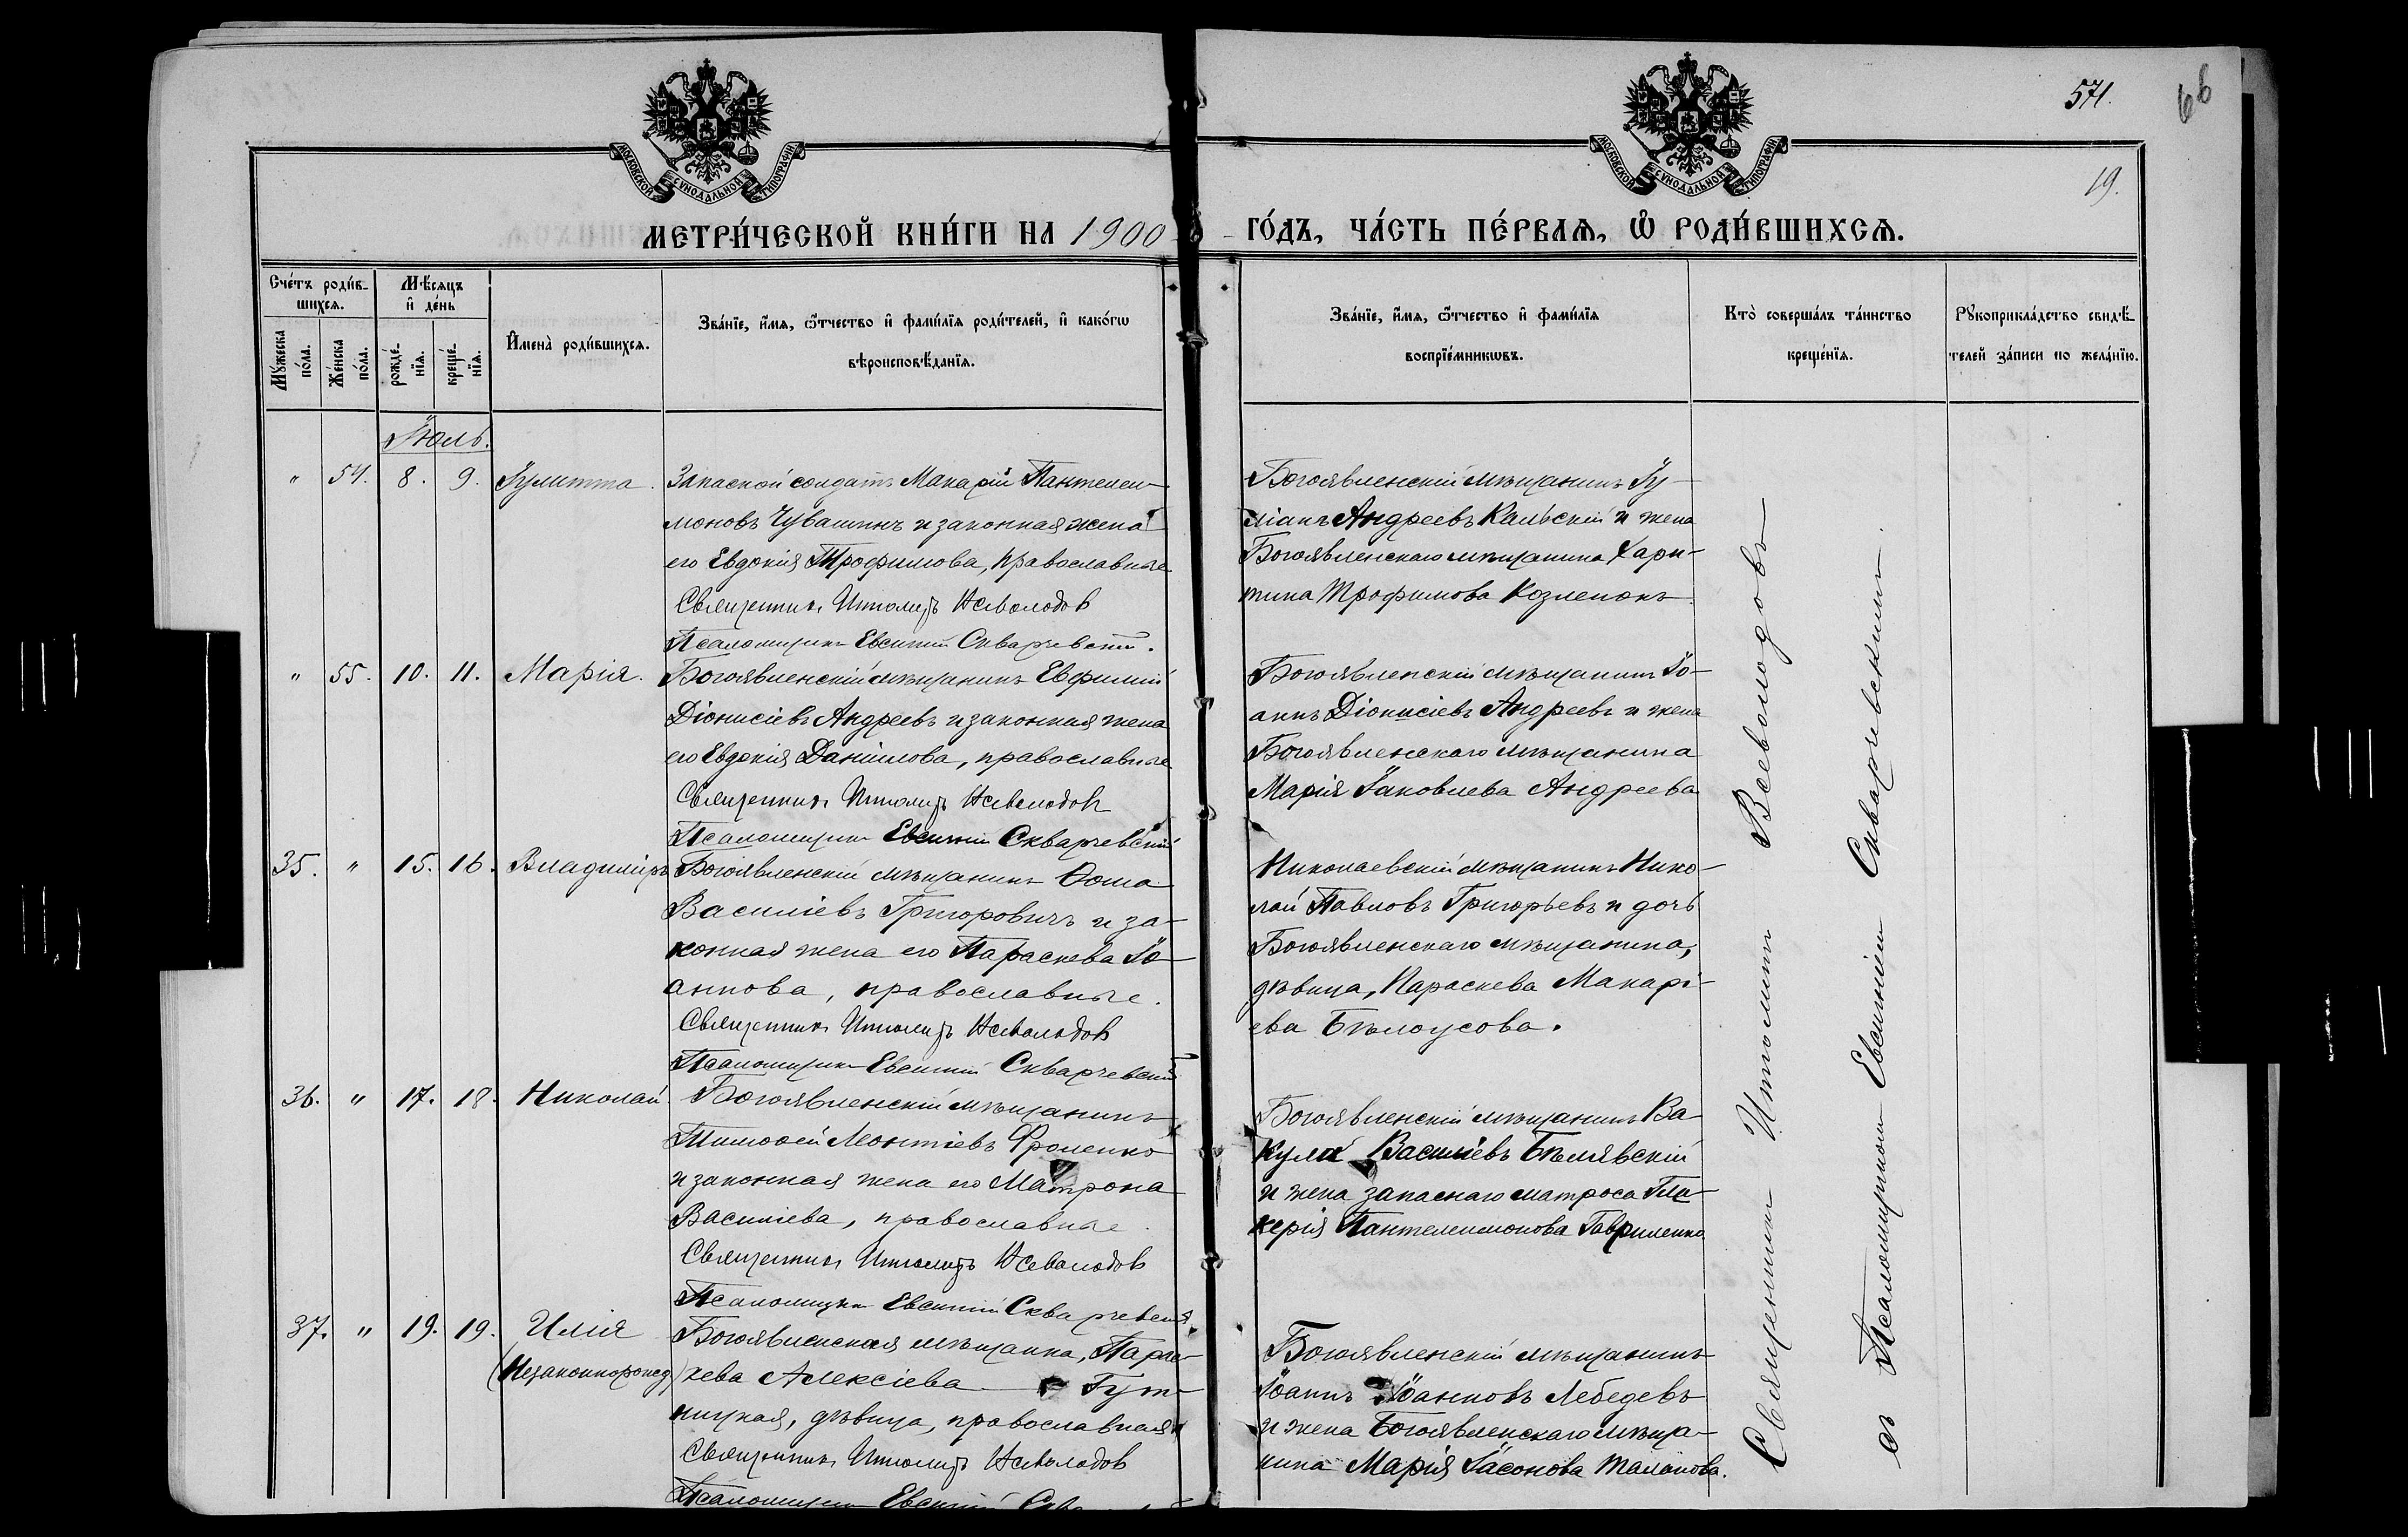 571.
66
19.
МОСКОВСКОЙ СУНОДАЛЬНОЙ ТИПОГРАФІИ
МОСКОВСКОЙ СУНОДАЛЬНОЙ ТИПОГРАФІИ
МЕТРИ́ЧЕСКОЙ КНИ́ГИ НА 1900
ГО́ДЪ, ЧА́СТЬ ПЕ́РВАѦ, Ѡ РОДИ́ВШИХСѦ.
Сче́тъ роди́в-
шихсѧ.
Мꙋжеска по́ла.
Же́нска по́ла.
Мѣ́сѧцъ
и҆ де́нь
рожде́-
нїѧ.
креще́-
нїѧ.
И҆мена̀ роди́вшихсѧ.
Зва́нїе, и҆́мѧ, ѻ҆́тчество и҆ фами́лїѧ роди́телей, и҆ како́гѡ
вѣроисповѣ́данїѧ.
Зва́нїе, и҆́мѧ, ѻ҆́тчество и҆ фами́лїѧ
воспрїе́мникѡвъ.
Кто̀ соверша́лъ та́инство
креще́нїѧ.
Рꙋкоприкла́дство свидѣ́-
телей за́писи по жела́нїю.
Іюль.
" 54. 8. 9. Іулитта.
Запасной солдатъ Макарій Пантелеи-
моновъ Чувашинъ и законная жена
его Евдокія Трофимова, православные
Священникъ Ипполитъ Всеволодовъ
Псаломщикъ Евсигній Скварчевскій.
Богоявленскій мѣщанинъ Іу-
ліанъ Андреевъ Кальскій и жена
Богоявленскаго мѣщанина Хари-
тина Трофимова Козленокъ.
" 55. 10. 11. Марія.
Богоявленскій мѣщанинъ Евфимій
Діонисіевъ Андреевъ и законная жена
его Евдокія Даніилова, православные
Священникъ Ипполитъ Всеволодовъ
Псаломщикъ Евсигній Скварчевскій
Богоявленскій мѣщанинъ Іо-
аннъ Діонисіевъ Андреевъ и жена
Богоявленскаго мѣщанина
Марія Іаковлева Андреева
35. " 15. 16. Владиміръ
Богоявленскій мѣщанинъ Ѳома
Василіевъ Григоровичъ и за-
конная жена его Параскева Іо-
аннова, православные.
Священникъ Ипполитъ Всеволодовъ
Псаломщикъ Евсигній Скварчевскій
Николаевскій мѣщанинъ Нико-
лай Павловъ Григорьевъ и дочь
Богоявленскаго мѣщанина,
дѣвица, Параскева Макарі-
ева Бѣлоусова.
36. " 17. 18. Николай
Богоявленскій мѣщанинъ
Тимоѳей Леонтіевъ Фроленко
и законная жена его Матрона
Василіева, православные.
Священникъ Ипполитъ Всеволодовъ
Псаломщикъ Евсигній Скварчевскій
Богоявленскій мѣщанинъ Ва-
кула Василіевъ Бѣлявскій
и жена запаснаго матроса Гли-
керія Пантелеимонова Гавриленко
37. " 19. 19. Илія
(Незаконнорожд)
Богоявленская мѣщанка, Парас-
кева Алексіева Гут-
ницкая, дѣвица, православная
Священникъ Ипполитъ Всеволодовъ
Псаломщикъ Евсигній
Богоявленскій мѣщанинъ
Іоаннъ Іоанновъ Лебедевъ
и жена Богоявленскаго мѣща-
нина Марія Іасонова Таланова.
Священникъ Ипполитъ Всеволодовъ
съ Псаломщикомъ Евсигніемъ Скварчевскимъ.